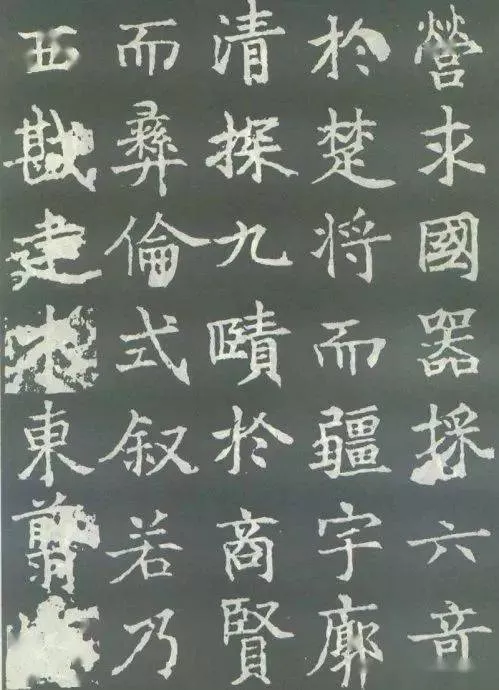 營求國器採六竒
於楚将而疆宇廓
清探九賾於商賢
而彝倫式叙若乃
西戡建木東翦